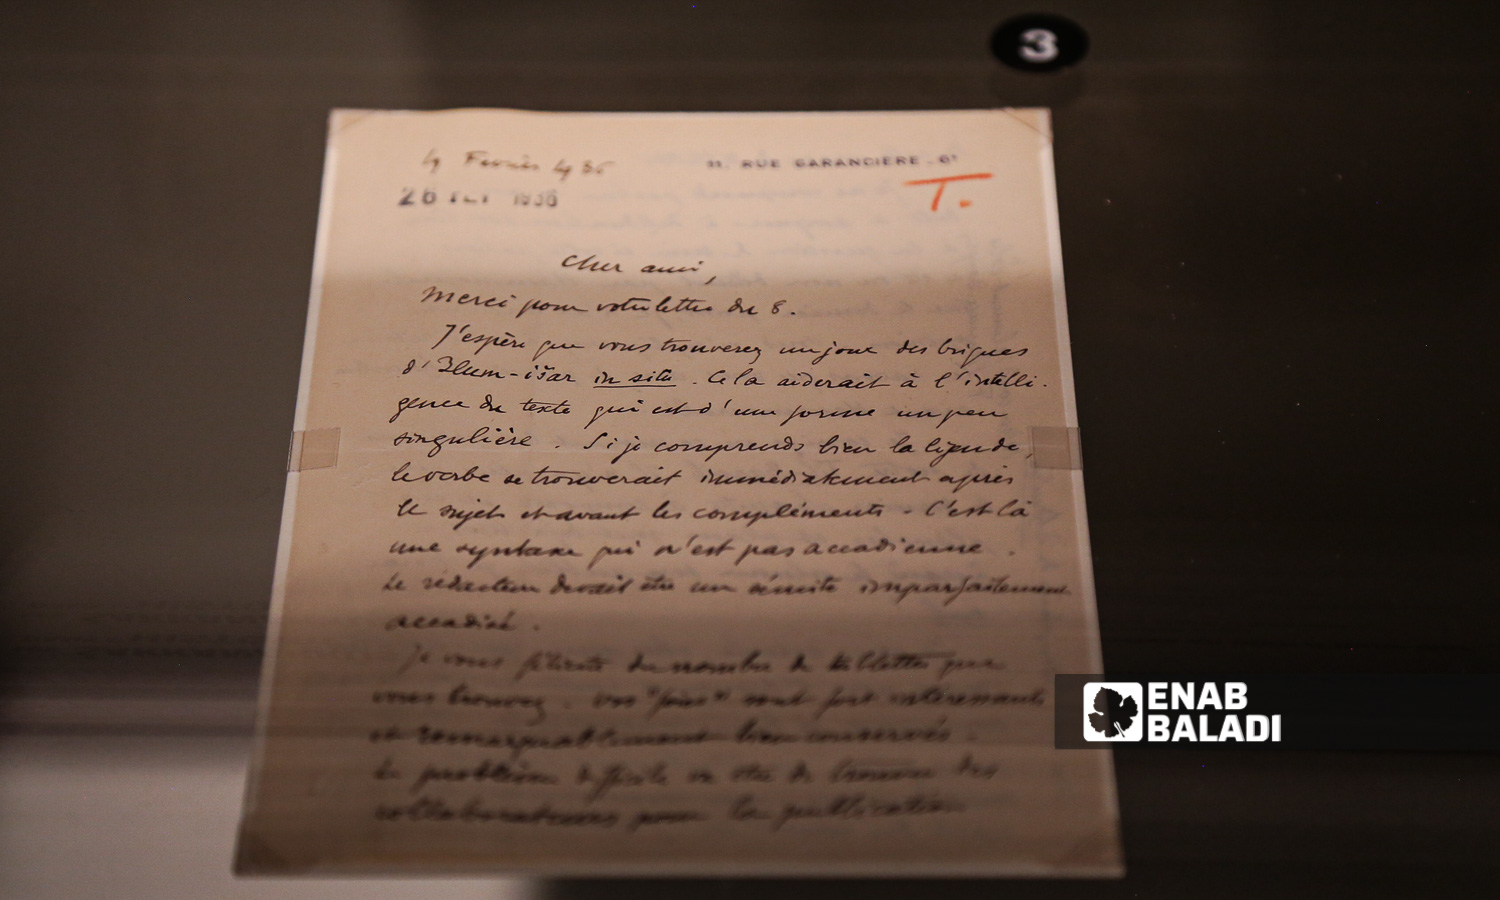 3
19 Février 1936
11, RUE GARANCIÈRE _ 6ᵉ
26 1936
T.
Cher ami,
Merci pour votre lettre du 8.
J'espère que vous trouverez un jour des briques
d'Ilum-išar in situ. Cela aiderait à l'intelli-
gence du texte qui est d'une forme un peu
singulière. Si je comprends bien la légende,
le verbe se trouverait immédiatement après
le sujet et avant les compléments. C'est là
une syntaxe qui n'est pas accadienne.
Le rédacteur devait être un sémite imparfaitement
accadisé.
Je vous félicite du nombre de tablettes que
vous trouvez. Vos "foies" sont fort intéressants
et remarquablement bien conservés.
Le problème difficile va être de trouver des
collaborateurs pour la publication
ENAB
BALADI